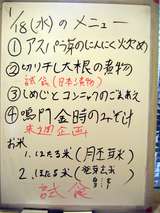 1/18(水)のメニュー
①アスパラ菜のにんにく炒め
②切り干し大根の煮物
試食(日本漬物)
③しめじとコンニャクのごまあえ
④鳴門金時のみそ汁
企画
お米
1.ほたる米(胚芽米)
2.ほたる米(発芽玄米)
試食